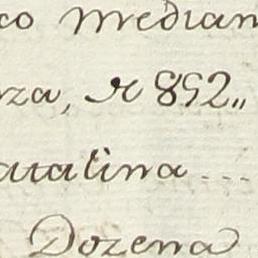 co median
za, R 892,,
atalina ...
Dozena